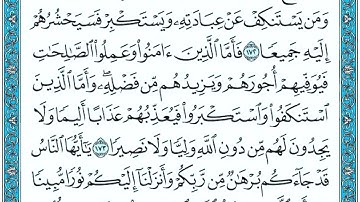 وَمَن يَسْتَنكِفْ عَنْ عِبَادَتِهِۦ وَيَسْتَكْبِرْ فَسَيَحْشُرُهُمْ
إِلَيْهِ جَمِيعًا ١٧٢ فَأَمَّا ٱلَّذِينَ ءَامَنُوا۟ وَعَمِلُوا۟ ٱلصَّٰلِحَٰتِ
فَيُوَفِّيهِمْ أُجُورَهُمْ وَيَزِيدُهُم مِّن فَضْلِهِۦ ۖ وَأَمَّا ٱلَّذِينَ
ٱسْتَنكَفُوا۟ وَٱسْتَكْبَرُوا۟ فَيُعَذِّبُهُمْ عَذَابًا أَلِيمًا وَلَا
يَجِدُونَ لَهُم مِّن دُونِ ٱللَّهِ وَلِيًّا وَلَا نَصِيرًا ١٧٣ يَٰٓأَيُّهَا ٱلنَّاسُ
قَدْ جَآءَكُم بُرْهَٰنٌ مِّن رَّبِّكُمْ وَأَنزَلْنَآ إِلَيْكُمْ نُورًا مُّبِينًا